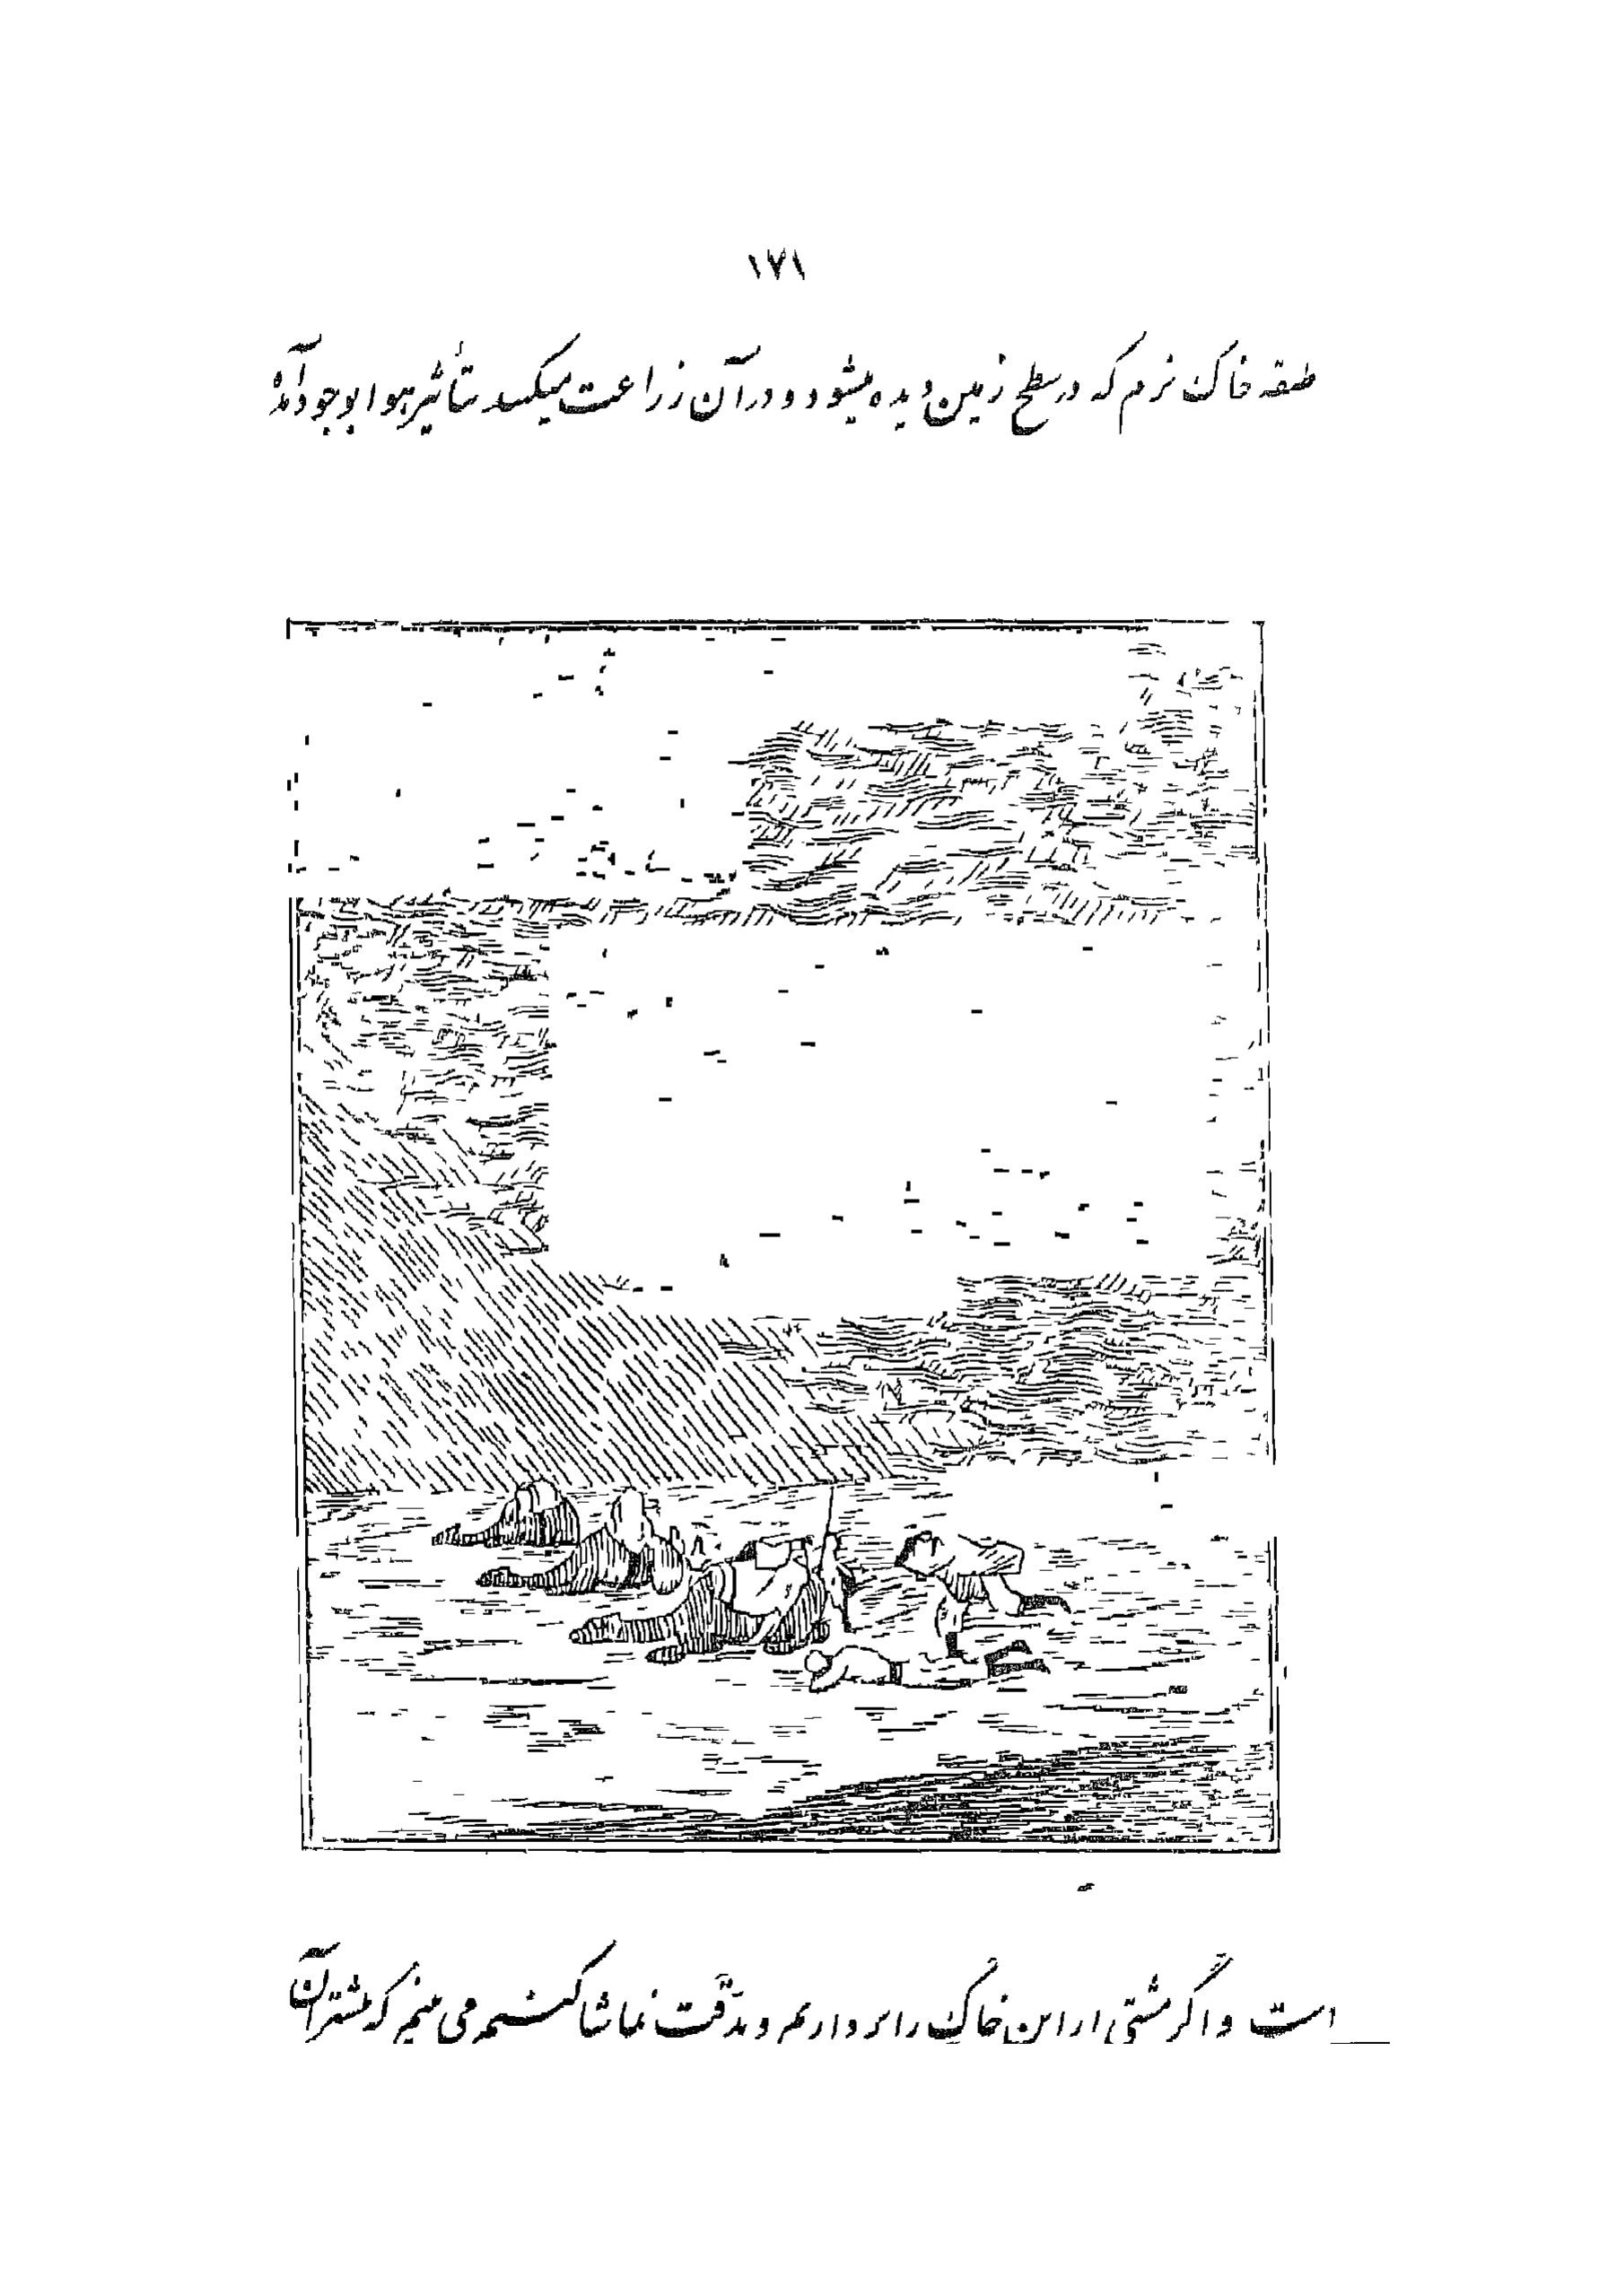 ۱۷۱
طبقه خاک نرم که در سطح زمین دیده میشود و در آن زراعت میکنند بتأثیر هوا بوجود آمده
است و اگر مشتی از این خاک را برداریم و بدقت تماشا کنیم می بینیم که بیشتر آن